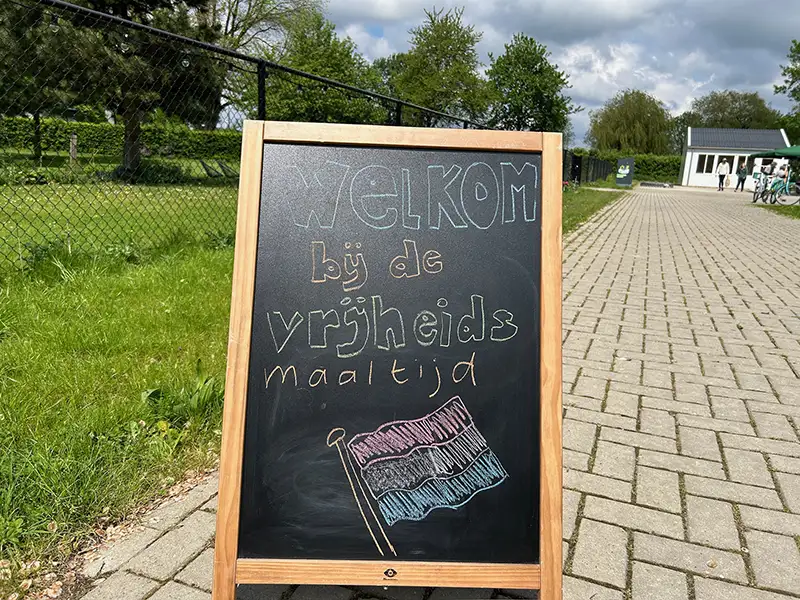 WelKOM
bij de
vrijheids
maaltijd